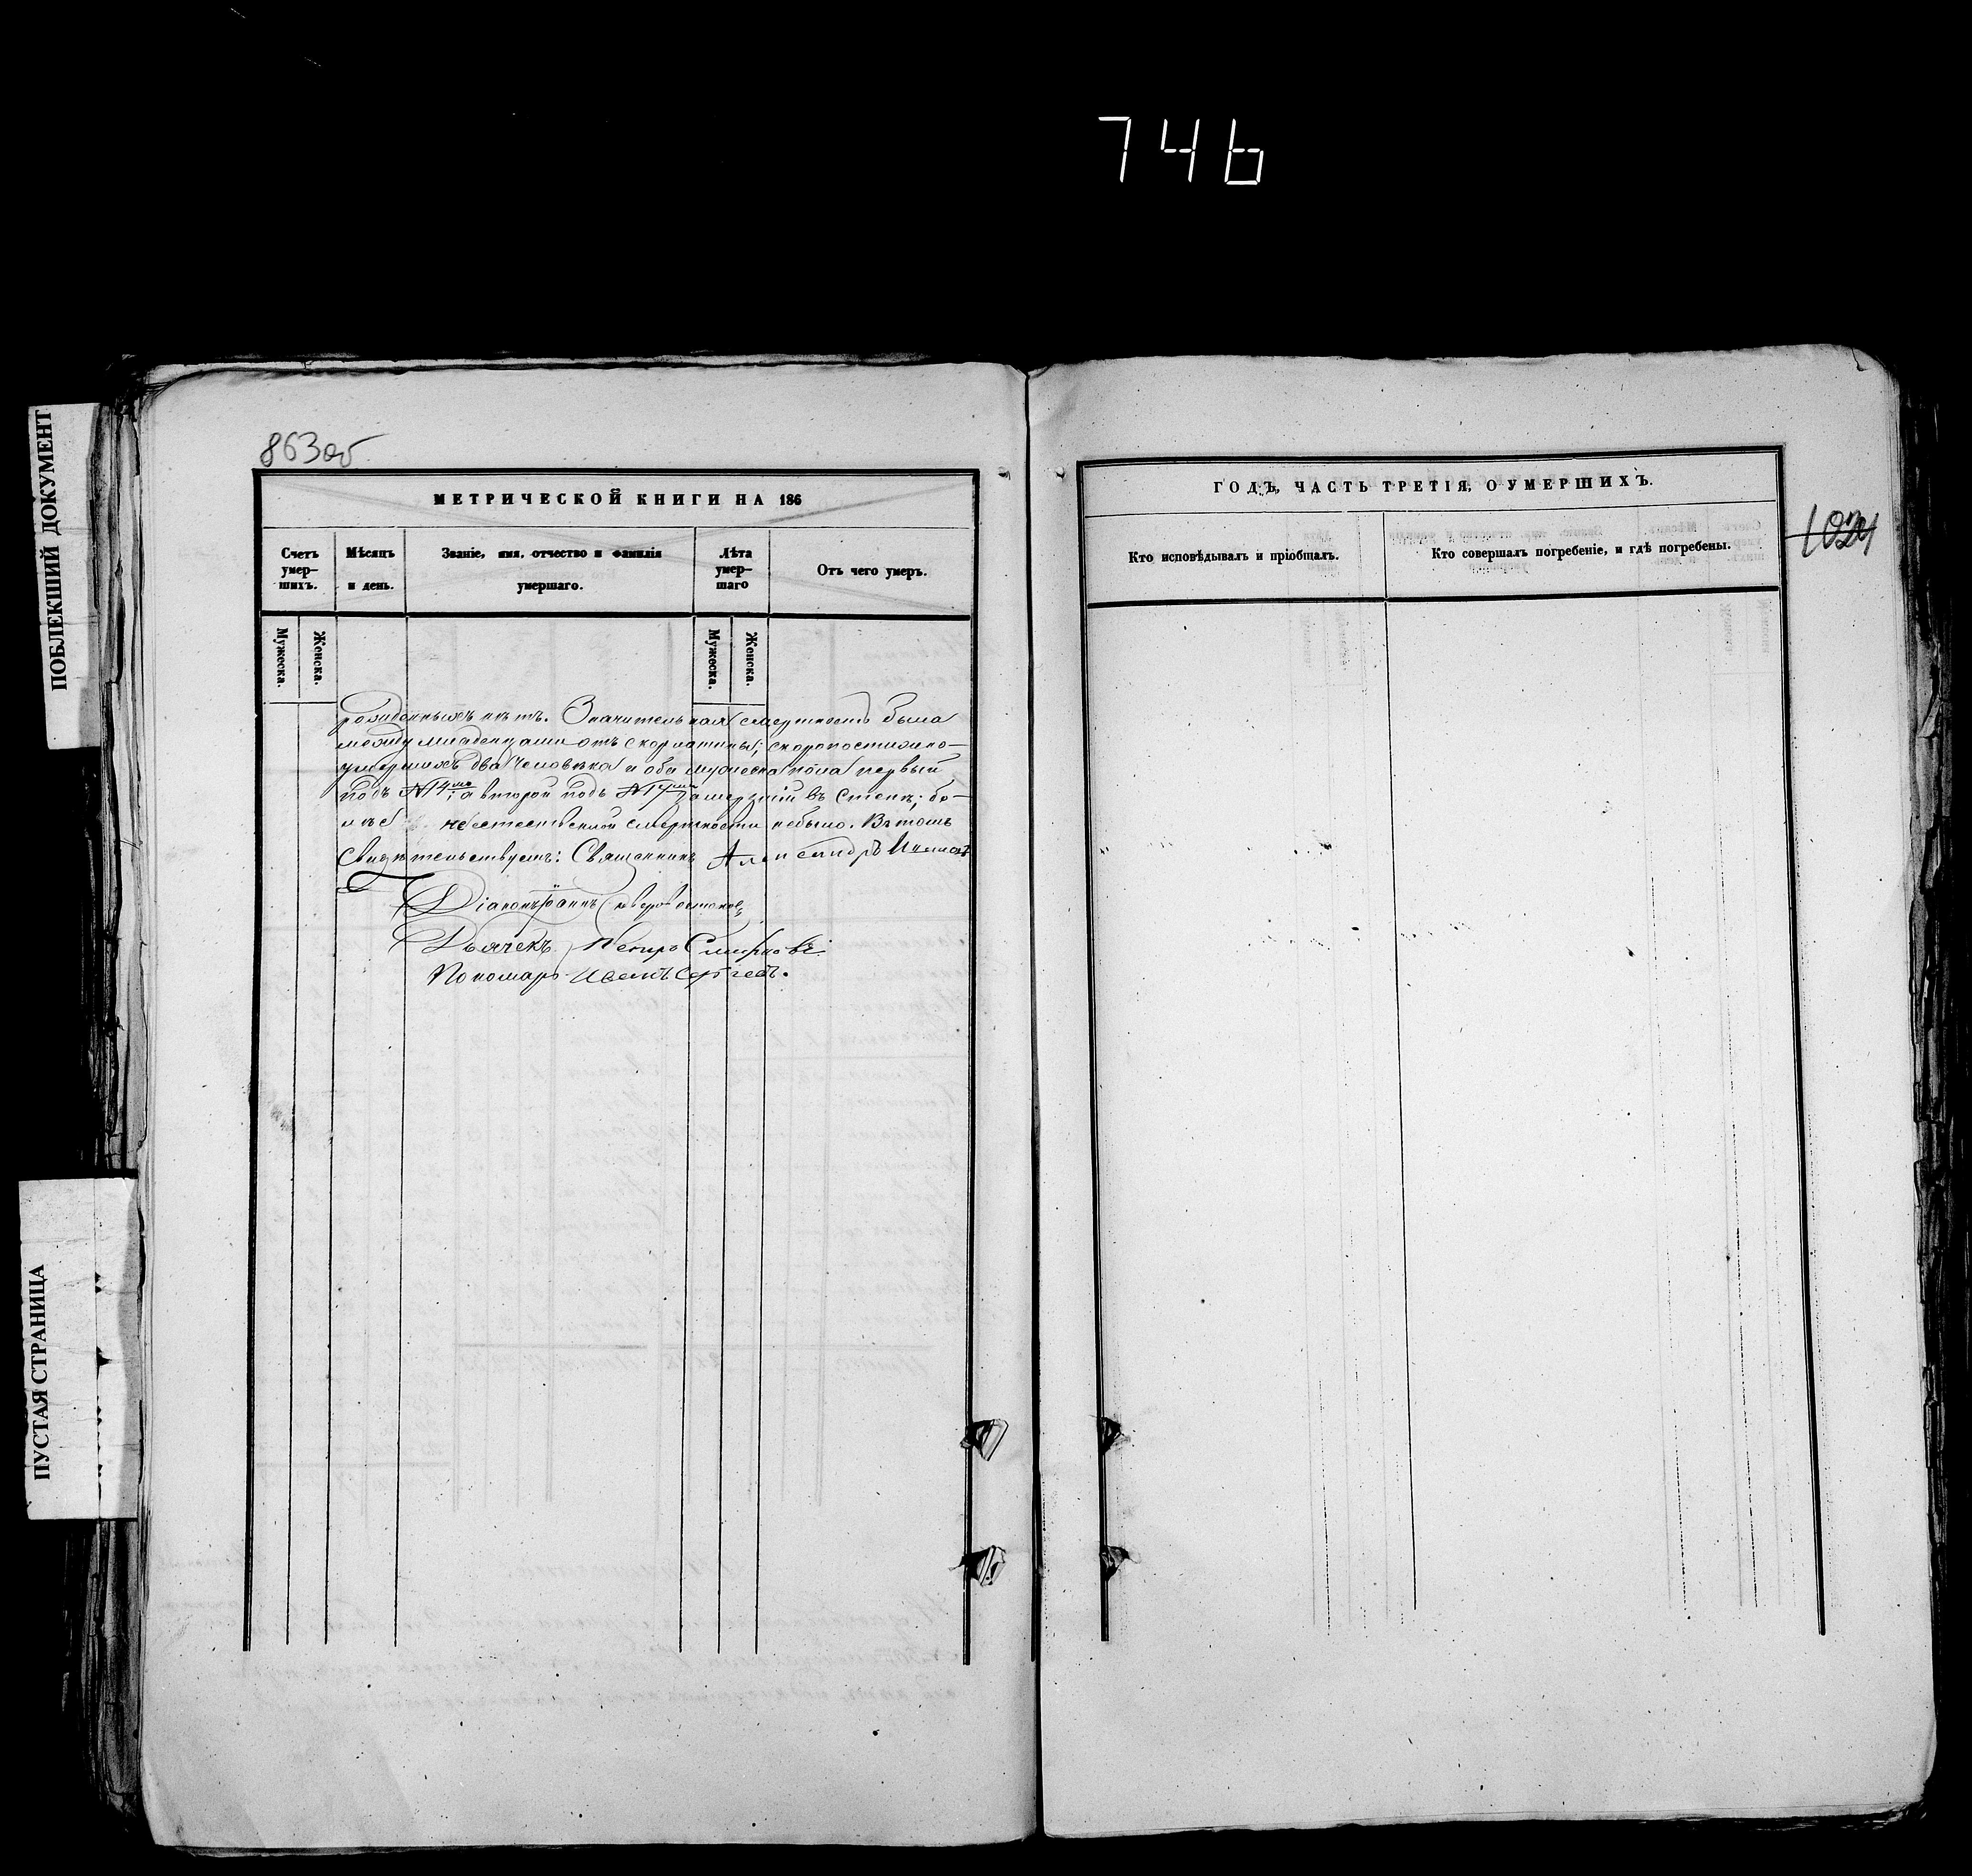 746
ПОБЛЕКШИЙ ДОКУМЕНТ
ПУСТАЯ СТРАНИЦА
863об
МЕТРИЧЕСКОЙ КНИГИ НА 186
Счетъ умер-шихъ.
Мѣсяцъ и день.
Званіе, имя, отчество и фамилія умершаго.
Лѣта умер-шаго
Отъ чего умеръ.
Мужеска.
Женска.
Мужеска.
Женска.
рожденныхъ нѣтъ. Значительная смертность была
между младенцами отъ скорлатины; скоропостижно-
умершихъ два человѣка и оба мужеска пола первый
подъ №14мъ; а второй подъ №17мъ замерзшій въ степѣ; бо-
лѣе неестественной смертности небыло. Въ томъ
свидѣтельствуемъ: Священникъ Александръ
Діаконъ
Дьячекъ Петръ Смирновъ.
Пономарь Иванъ Сергѣевъ.
ГОДЪ, ЧАСТЬ ТРЕТІЯ, О УМЕРШИХЪ.
Кто исповѣдывалъ и пріобщалъ.
Кто совершалъ погребеніе, и гдѣ погребены.